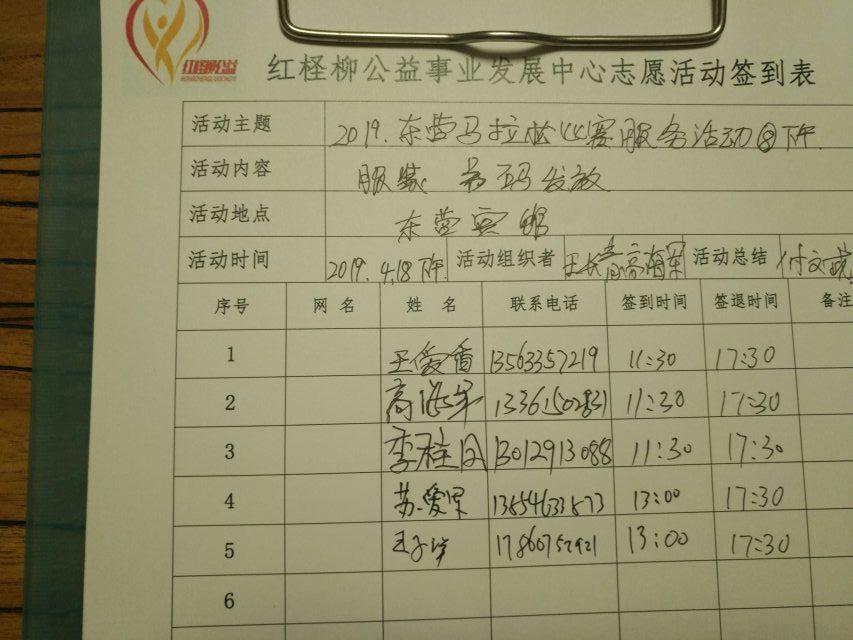 红柽柳公益
红柽柳公益事业发展中心志愿活动签到表
活动主题 2019.东营马拉松比赛服务活动⑧下午.
活动内容 服装 号码发放
活动地点 东营宾馆
活动时间 2019.4.18下午. 活动组织者 高海军 活动总结
序号 网名 姓名 联系电话 签到时间 签退时间 备注
1 13563357219 11:30 17:30
2 高海军 13361502831 11:30 17:30
3 李桂 13012913088 11:30 17:30
4 苏爱军 13:00 17:30
5 13:00 17:30
6